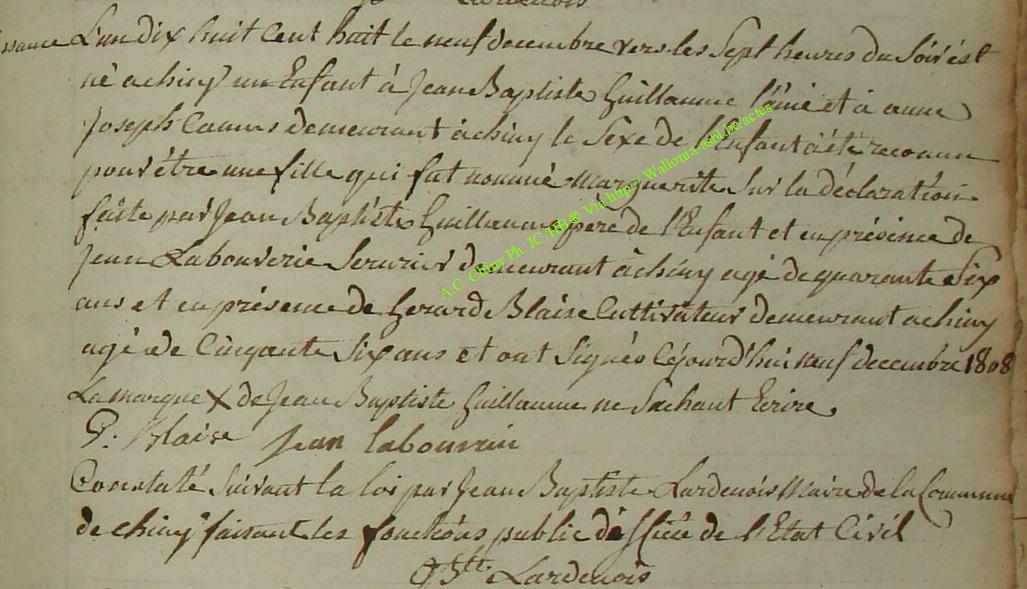 Lardenois
issance L'an dix huit Cent huit le neuf decembre vers les Sept heures du Soir est
né a chiny un Enfant à Jean Baptiste Guillaume l'ainé et à anne
Joseph demeurant à chiny le Sexe de l'Enfant à été reconnu
pour être une fille qui fut nommé Marguerite Sur la déclaration
faite par Jean Baptiste Guillaume pere de l'Enfant et en présence de
Jean Labouverie Serurier demeurant à chiny agé de quarante Six
ans et en présence de Gerard Blaise Cultivateur demeurant a chiny
agé de Cinqante Six ans et ont Signés Cejourd'hui neuf decembre 1808
La marque X de Jean Baptiste Guillaume ne Sachant Ecrire
G: Blaise Jean labouverie
Constaté Suivant la loi par Jean Baptiste Lardenois Maire de la Commune
de chiny faisant les fonctions public de l'Etat Civil
Lardenois
A.C. Chiny Ph. JC /HB& Via http:// Wallonia-asbl.be/actes